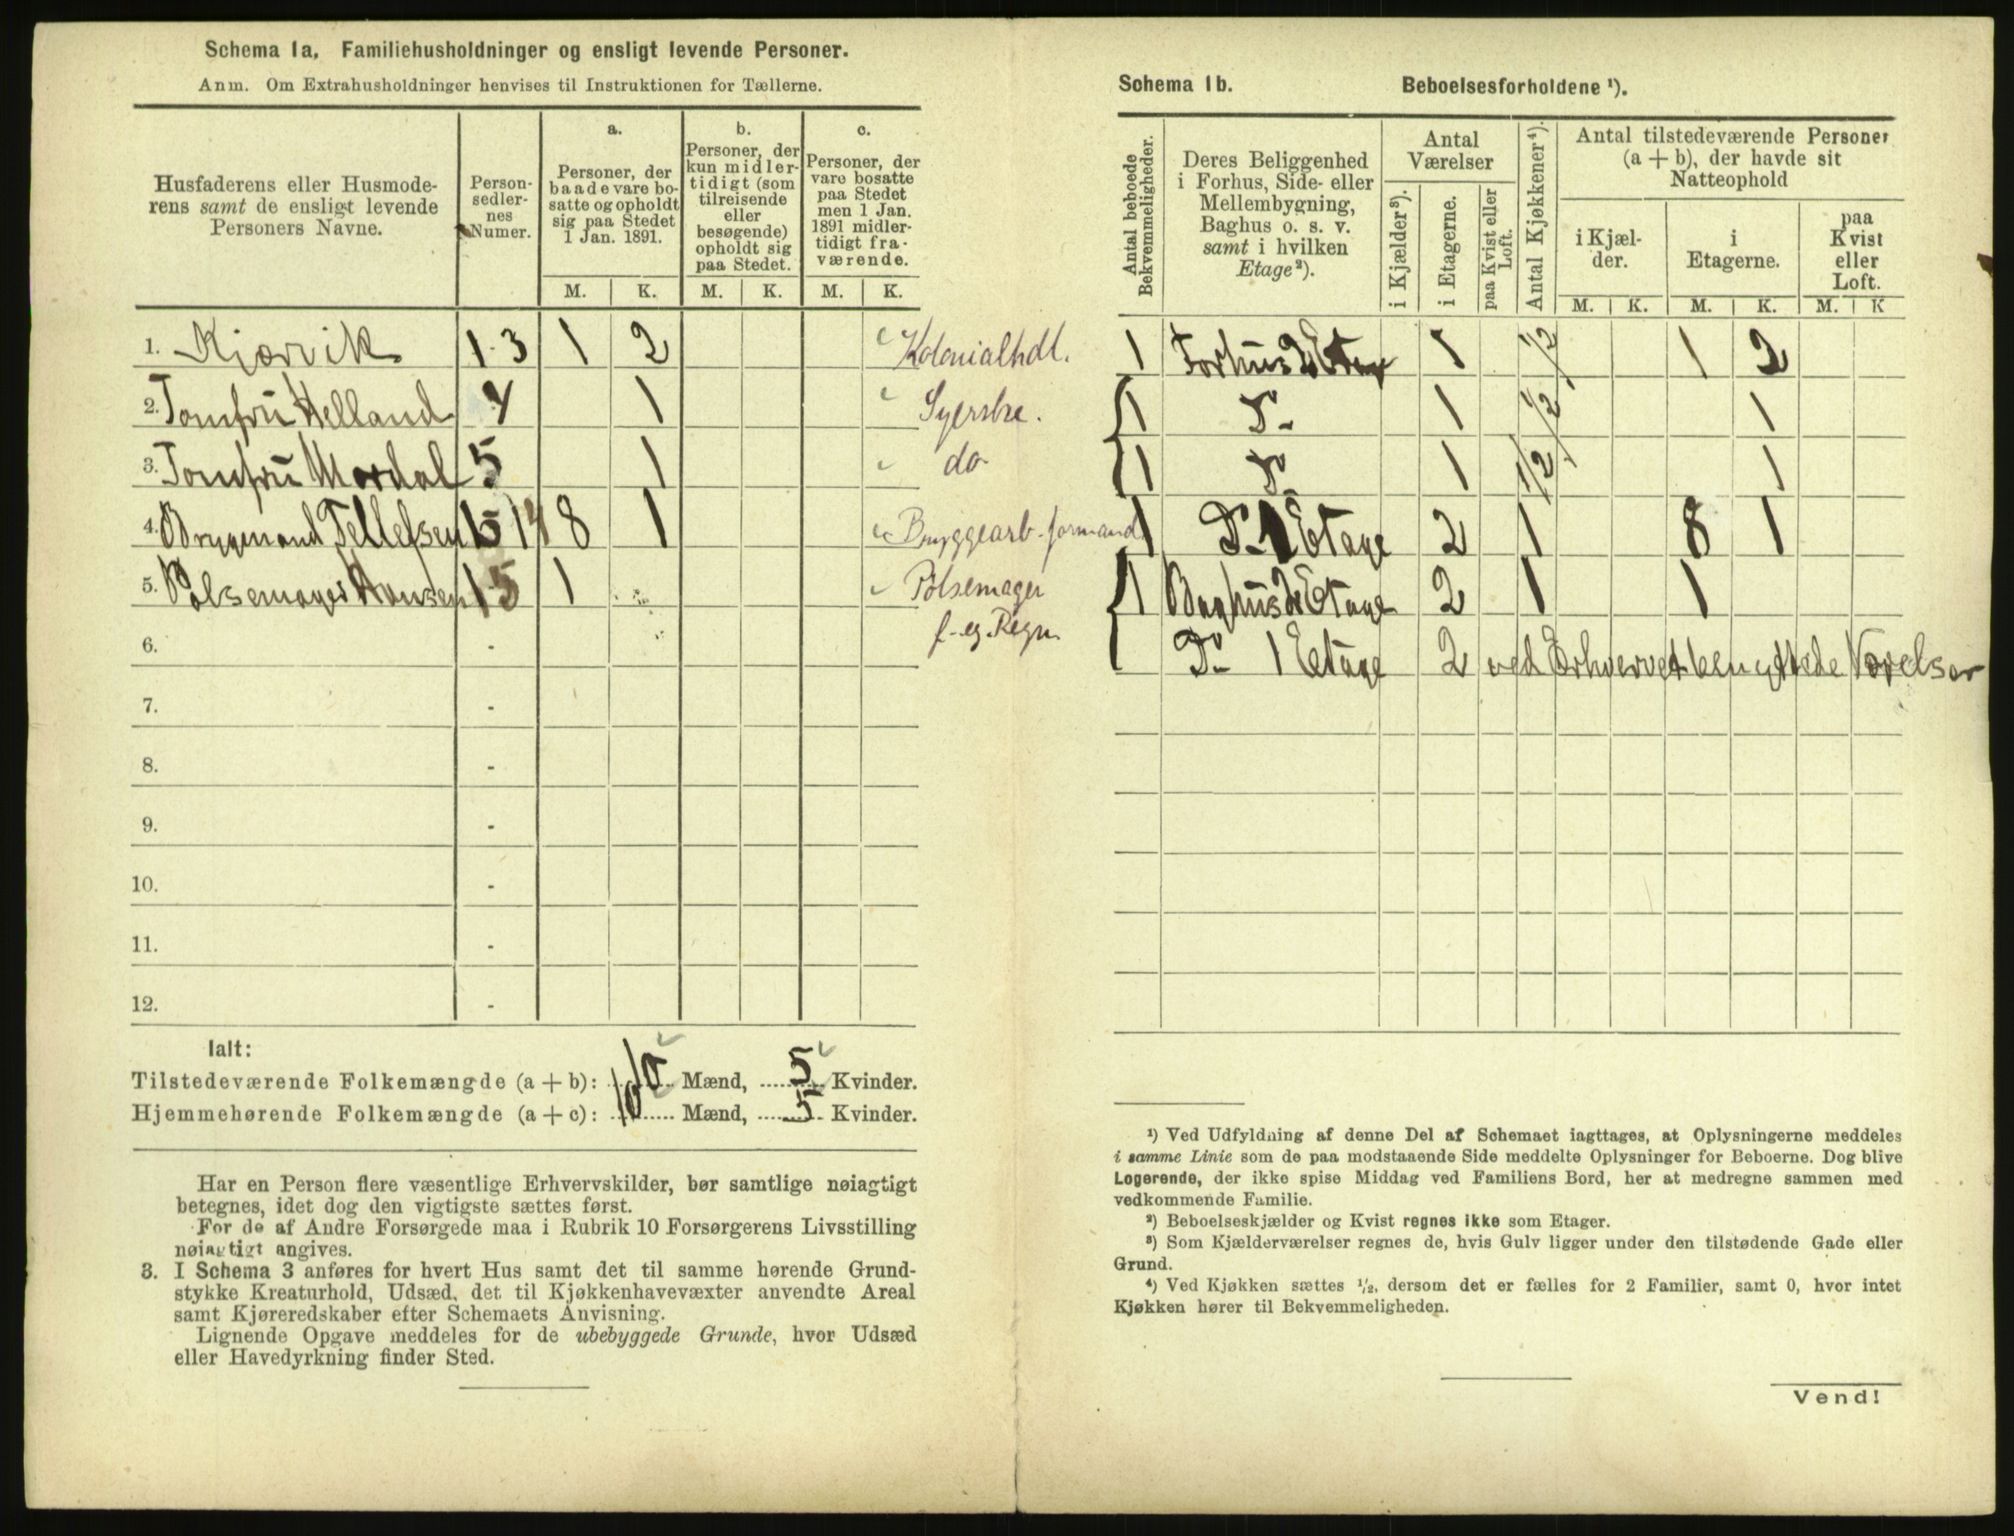 Schema 1a. Familiehusholdninger og ensligt levende Personer.
Anm. Om Extrahusholdninger henvises til Instruktionen for Tællerne.
Husfaderens eller Husmoderens samt de ensligt levende Personers Navne.
Personsedlernes Numer.
a.
Personer, der baade vare bosatte og opholdt sig paa Stedet 1 Jan. 1891.
b.
Personer, der kun midlertidigt (som tilreisende eller besøgende) opholdt sig paa Stedet.
c.
Personer, der vare bosatte paa Stedet men 1 Jan. 1891 midlertidigt fraværende.
M. K. M. K. M. K.
1. Kjørvik 1-3 1 2 Kolonialhdl.
2. Jomfru Helland 4 1 Syerske.
3. Jomfru Mordal 5 1 do
4. Bryggmand Tellefsen 14 8 1 Bryggearb-formand
5. Pølsemager Hansen 15 1 Pølsemager
6. - f. eg. Regn.
7. -
8. -
9. -
10. -
11. -
12. -
Ialt:
Tilstedeværende Folkemængde (a + b): 10 Mænd, 5 Kvinder.
Hjemmehørende Folkemængde (a + c): 10 Mænd, 5 Kvinder.
Har en Person flere væsentlige Erhvervskilder, bør samtlige nøiagtigt
betegnes, idet dog den vigtigste sættes først.
For de af Andre Forsørgede maa i Rubrik 10 Forsørgerens Livsstilling
nøiagtigt angives.
3. I Schema 3 anføres for hvert Hus samt det til samme hørende Grund-
stykke Kreaturhold, Udsæd, det til Kjøkkenhavevæxter anvendte Areal
samt Kjøreredskaber efter Schemaets Anvisning.
Lignende Opgave meddeles for de ubebyggede Grunde, hvor Udsæd
eller Havedyrkning finder Sted.
Schema 1b. Beboelsesforholdene ¹).
Antal beboede Bekvemmeligheder.
Deres Beliggenhed i Forhus, Side- eller Mellembygning, Baghus o. s. v. samt i hvilken Etage ²).
Antal Værelser
i Kjælder ³).
i Etagerne.
paa Kvist eller Loft.
Antal Kjøkkener ⁴).
Antal tilstedeværende Personer (a + b), der havde sit Natteophold
i Kjælder.
i Etagerne.
paa Kvist eller Loft.
M. K. M. K. M. K
1 Forhus 2 Etage 1 1/2 1 2
1 Do 1 1/2 1
1 Do 1 1/2 1
1 Do 1 Etage 2 1 8 1
1 Baghus 2 Etage 2 1 1
Do 1 Etage 2 ved Erhvervet benyttede Værelser
¹) Ved Udfyldning af denne Del af Schemaet iagttages, at Oplysningerne meddeles
i samme Linie som de paa modstaaende Side meddelte Oplysninger for Beboerne. Dog blive
Logerende, der ikke spise Middag ved Familiens Bord, her at medregne sammen med
vedkommende Familie.
²) Beboelseskjælder og Kvist regnes ikke som Etager.
³) Som Kjælderværelser regnes de, hvis Gulv ligger under den tilstødende Gade eller
Grund.
⁴) Ved Kjøkken sættes ¹/₂, dersom det er fælles for 2 Familier, samt 0, hvor intet
Kjøkken hører til Bekvemmeligheden.
Vend!